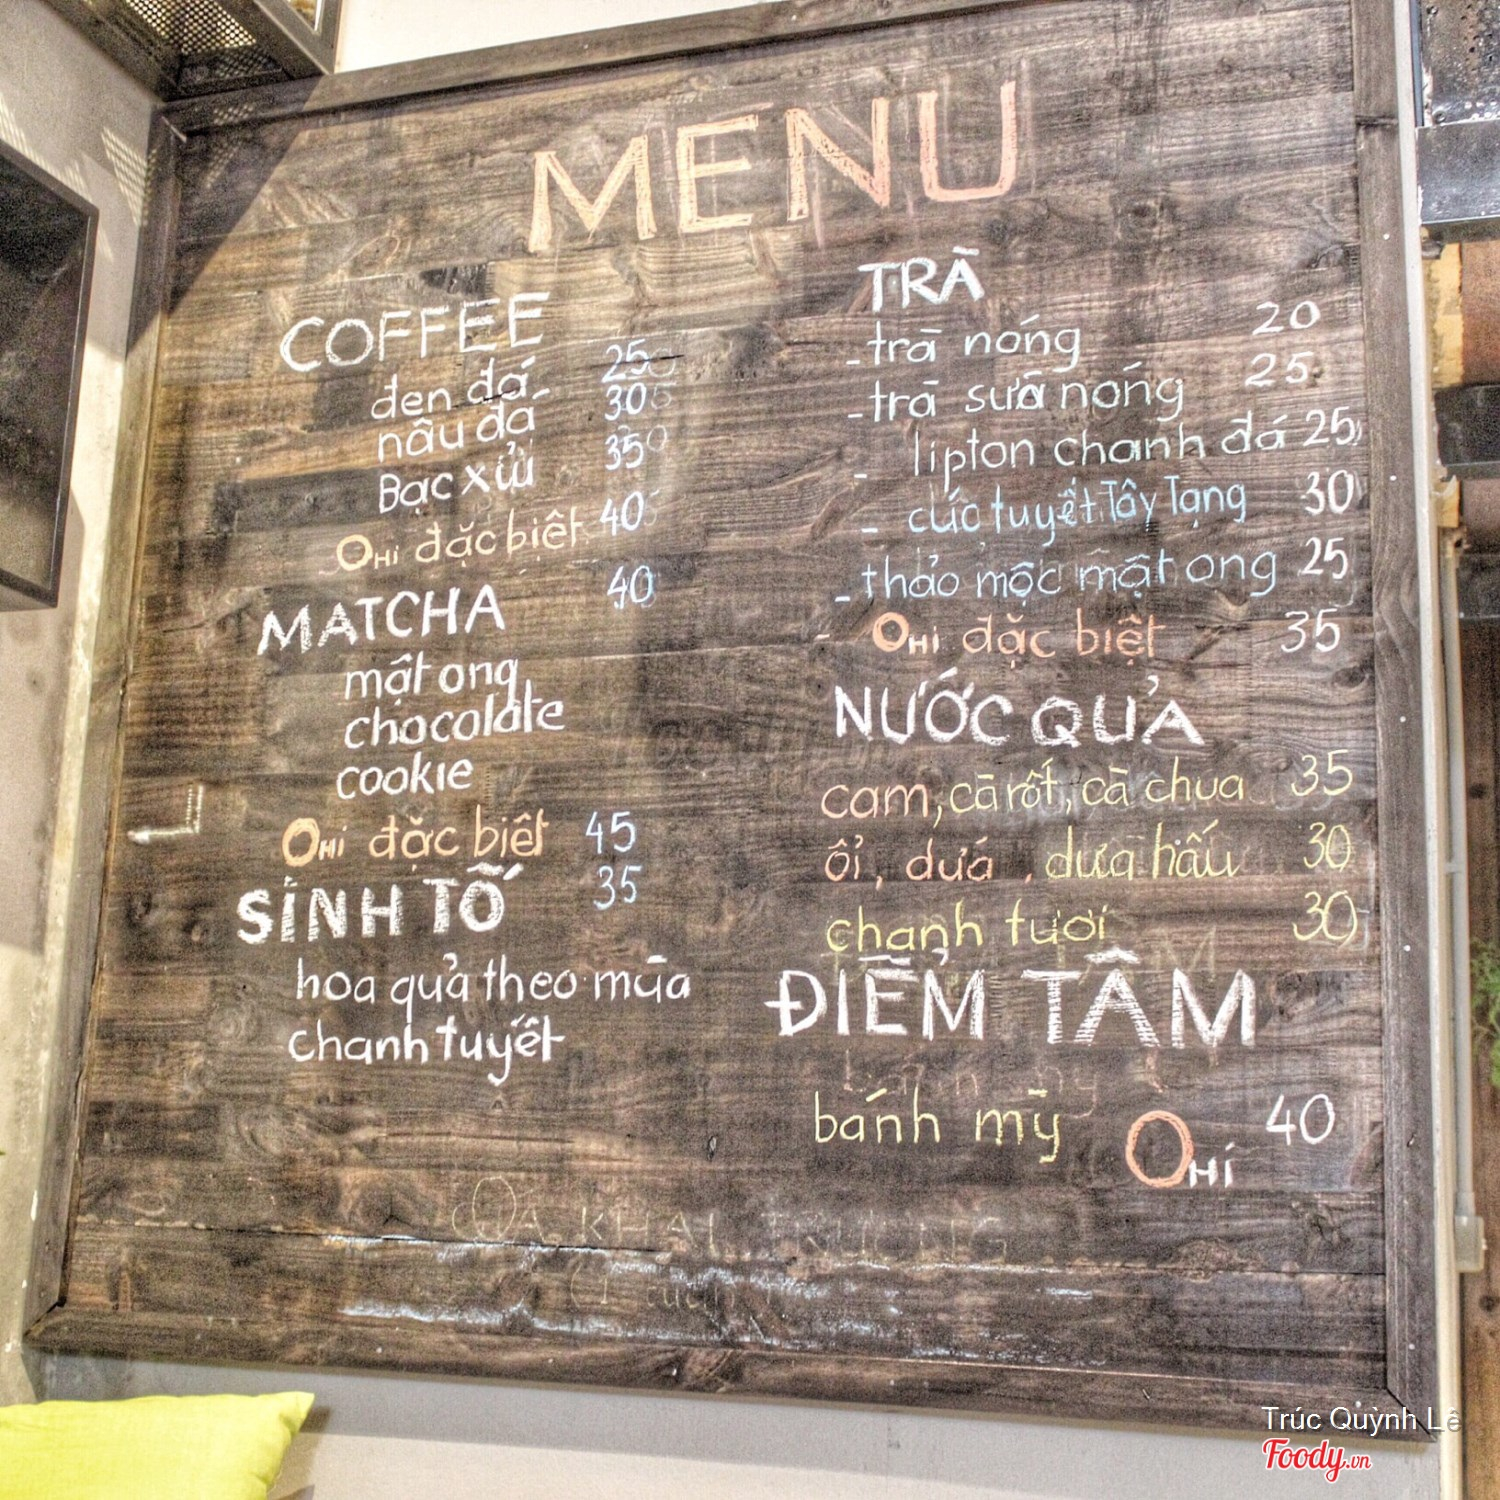 MENU
COFFEE
đen đá 25
nâu đá 30
Bạc xỉu 35
OHI đặc biệt 40
MATCHA 40
mật ong
chocolate
cookie
OHI đặc biệt 45
SINH TỐ 35
hoa quả theo mùa
chanh tuyết
TRÀ
- trà nóng 20
- trà sữa nóng 25
- lipton chanh đá 25
- cúc tuyết Tây Tạng 30
- thảo mộc mật ong 25
- OHI đặc biệt 35
NƯỚC QUẢ
cam, cà rốt, cà chua 35
ổi, dứa, dưa hấu 30
chanh tươi 30
ĐIỂM TÂM
bánh mỳ OHI 40
KHAI TRƯƠNG
Trúc Quỳnh Lê
Foody.vn